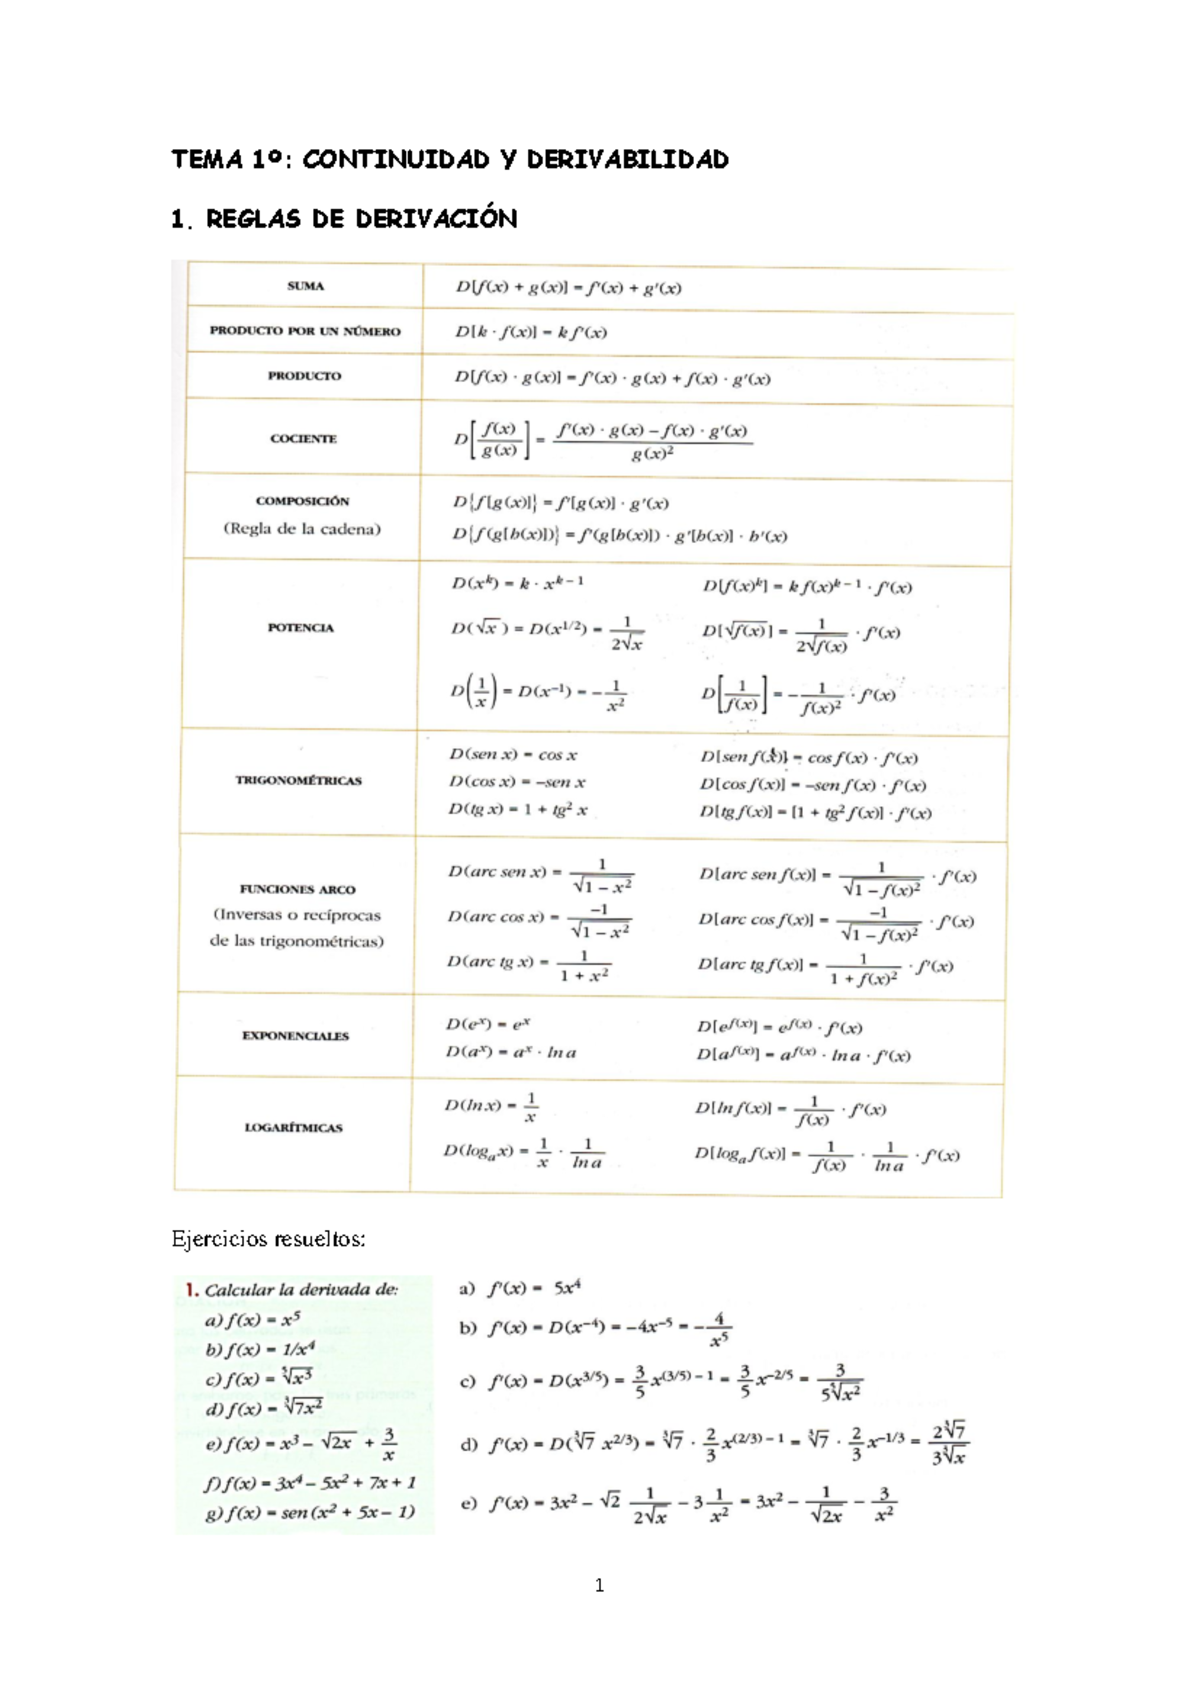 TEMA 1º: CONTINUIDAD Y DERIVABILIDAD
1. REGLAS DE DERIVACIÓN
SUMA D[f(x) + g(x)] = f'(x) + g'(x)
PRODUCTO POR UN NÚMERO D[k · f(x)] = k f'(x)
PRODUCTO D[f(x) · g(x)] = f'(x) · g(x) + f(x) · g'(x)
COCIENTE D[f(x)/g(x)] = (f'(x) · g(x) – f(x) · g'(x))/g(x)²
COMPOSICIÓN D{f[g(x)]} = f'[g(x)] · g'(x)
(Regla de la cadena) D{f(g[h(x)])} = f'(g[h(x)]) · g'[h(x)] · h'(x)
D(xᵏ) = k · xᵏ⁻¹ D[f(x)ᵏ] = k f(x)ᵏ⁻¹ · f'(x)
POTENCIA D(√x) = D(x^(1/2)) = 1/(2√x) D[√f(x)] = 1/(2√f(x)) · f'(x)
D(1/x) = D(x⁻¹) = –1/x² D[1/f(x)] = –1/f(x)² · f'(x)
D(sen x) = cos x D[sen f(x)] = cos f(x) · f'(x)
TRIGONOMÉTRICAS D(cos x) = –sen x D[cos f(x)] = –sen f(x) · f'(x)
D(tg x) = 1 + tg² x D[tg f(x)] = [1 + tg² f(x)] · f'(x)
D(arc sen x) = 1/√(1 – x²) D[arc sen f(x)] = 1/√(1 – f(x)²) · f'(x)
FUNCIONES ARCO
(Inversas o recíprocas D(arc cos x) = –1/√(1 – x²) D[arc cos f(x)] = –1/√(1 – f(x)²) · f'(x)
de las trigonométricas)
D(arc tg x) = 1/(1 + x²) D[arc tg f(x)] = 1/(1 + f(x)²) · f'(x)
EXPONENCIALES D(eˣ) = eˣ D[e^f(x)] = e^f(x) · f'(x)
D(aˣ) = aˣ · ln a D[a^f(x)] = a^f(x) · ln a · f'(x)
LOGARÍTMICAS D(ln x) = 1/x D[ln f(x)] = 1/f(x) · f'(x)
D(logₐ x) = 1/x · 1/ln a D[logₐ f(x)] = 1/f(x) · 1/ln a · f'(x)
Ejercicios resueltos:
1. Calcular la derivada de:
a) f(x) = x⁵
b) f(x) = 1/x⁴
c) f(x) = ⁵√x³
d) f(x) = ³√7x²
e) f(x) = x³ – √2x + 3/x
f) f(x) = 3x⁴ – 5x² + 7x + 1
g) f(x) = sen (x² + 5x – 1)
a) f'(x) = 5x⁴
b) f'(x) = D(x⁻⁴) = –4x⁻⁵ = –4/x⁵
c) f'(x) = D(x^(3/5)) = 3/5 x^((3/5) – 1) = 3/5 x^(–2/5) = 3/(5 ⁵√x²)
d) f'(x) = D(³√7 x^(2/3)) = ³√7 · 2/3 x^((2/3) – 1) = ³√7 · 2/3 x^(–1/3) = 2 ³√7/(3 ³√x)
e) f'(x) = 3x² – √2 1/(2√x) – 3 1/x² = 3x² – 1/√2x – 3/x²
1